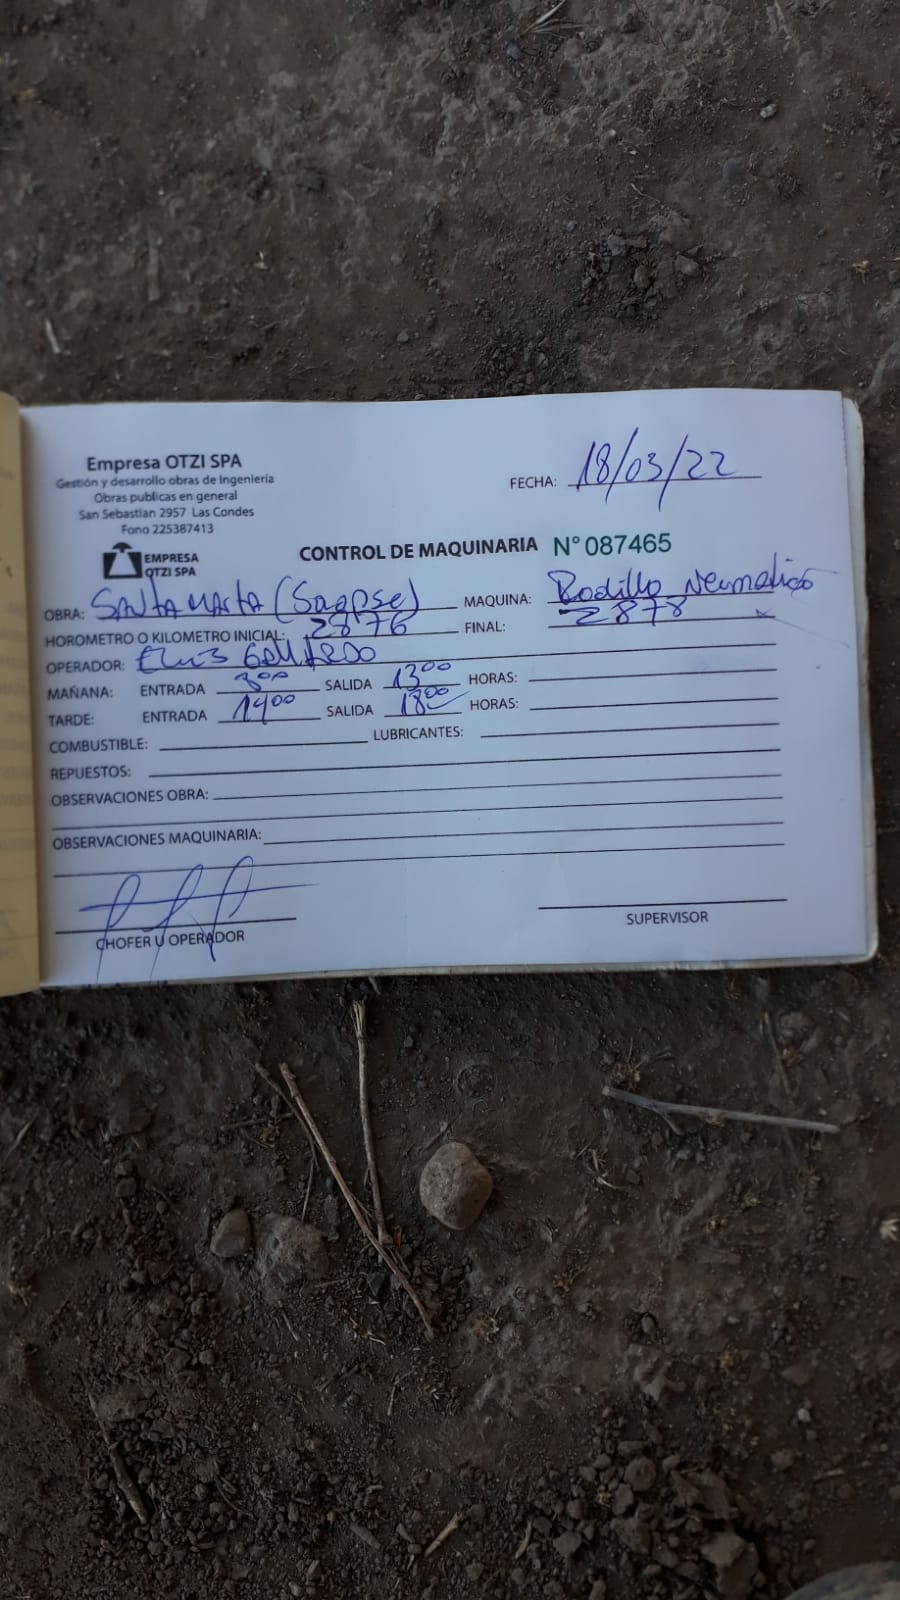 Empresa OTZI SPA
Gestión y desarrollo obras de Ingeniería
Obras publicas en general
San Sebastian 2957 Las Condes
Fono 225387413
EMPRESA
OTZI SPA
FECHA: 18/03/22
CONTROL DE MAQUINARIA N° 087465
OBRA: SANTA MARTA ( MAQUINA: Rodillo Neumatico
HOROMETRO O KILOMETRO INICIAL: 2876 FINAL: 2878
OPERADOR:
MAÑANA: ENTRADA 8:00 SALIDA 13:00 HORAS:
TARDE: ENTRADA 14:00 SALIDA 18:00 HORAS:
COMBUSTIBLE: LUBRICANTES:
REPUESTOS:
OBSERVACIONES OBRA:
OBSERVACIONES MAQUINARIA:
CHOFER U OPERADOR
SUPERVISOR